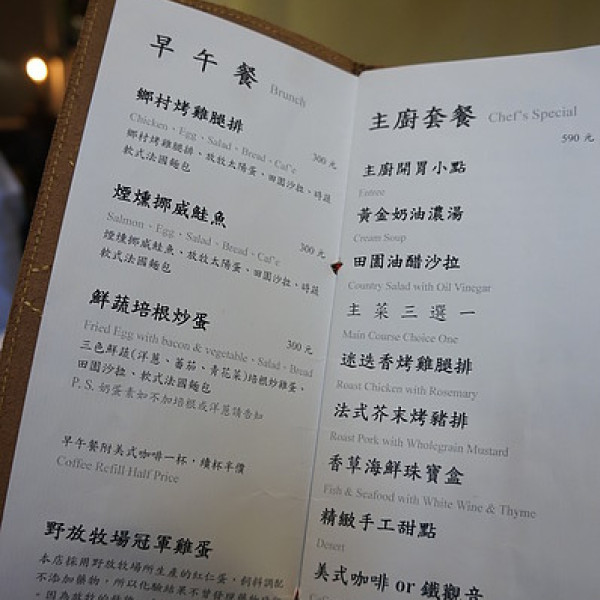 早午餐 Brunch
鄉村烤雞腿排
Chicken、Egg、Salad、Bread、Caf'e
300元
鄉村烤雞腿排、放牧太陽蛋、田園沙拉、時蔬
軟式法國麵包
煙燻挪威鮭魚
Salmon、Egg、Salad、Bread、Caf'e
300元
煙燻挪威鮭魚、放牧太陽蛋、田園沙拉、時蔬
軟式法國麵包
鮮蔬培根炒蛋
300元
Fried Egg with bacon & vegetable、Salad、Bread
三色鮮蔬(洋蔥、蕃茄、青花菜)培根炒雞蛋、
田園沙拉、軟式法國麵包
P.S. 奶蛋素如不加培根或洋蔥請告知
早午餐附美式咖啡一杯，續杯半價
Coffee Refill Half Price
野放牧場冠軍雞蛋
本店採用野放牧場所生產的紅仁蛋，飼料調配
不添加藥物，所以化驗結果不曾發現藥物
主廚套餐 Chef's Special
590元
主廚開胃小點
Entree
黃金奶油濃湯
Cream Soup
田園油醋沙拉
Country Salad with Oil Vinegar
主菜三選一
Main Course Choice One
迷迭香烤雞腿排
Roast Chicken with Rosemary
法式芥末烤豬排
Roast Pork with Wholegrain Mustard
香草海鮮珠寶盒
Fish & Seafood with White Wine & Thyme
精緻手工甜點
Desert
美式咖啡 or 鐵觀音